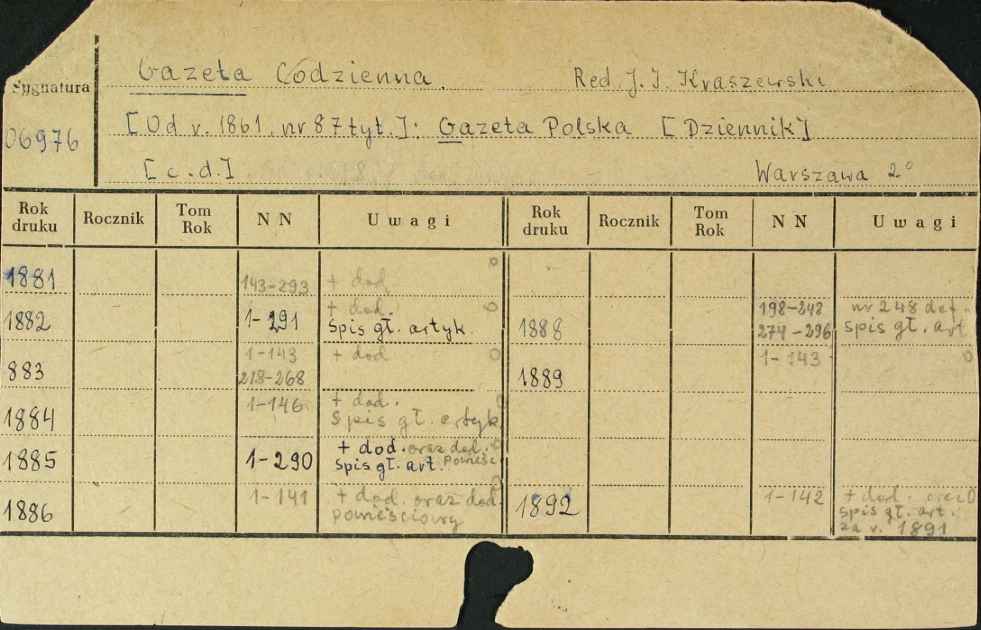 Sygnatura
06976
Gazeta Codzienna. Red. J. I. Kraszewski
[Od r. 1861. nr 87 tyt.]: Gazeta Polska [Dziennik]
[c.d.] Warszawa 2°
Rok druku Rocznik Tom Rok NN Uwagi Rok druku Rocznik Tom Rok NN Uwagi
1881 143-293 + dod
1882 1-291 + dod. spis gł. artyk.
883 1-143 218-268 + dod
1884 1-146 + dod. spis gł. artyk
1885 1-290 + dod. oraz dod. powieśc spis gł. art.
1886 1-141 + dod. oraz dod. powieściowy
1888 198-248 274-296 nr 248 def. spis gł. art
1889 1-143
1892 1-142 + dod. oraz spis gł. art. za r. 1891